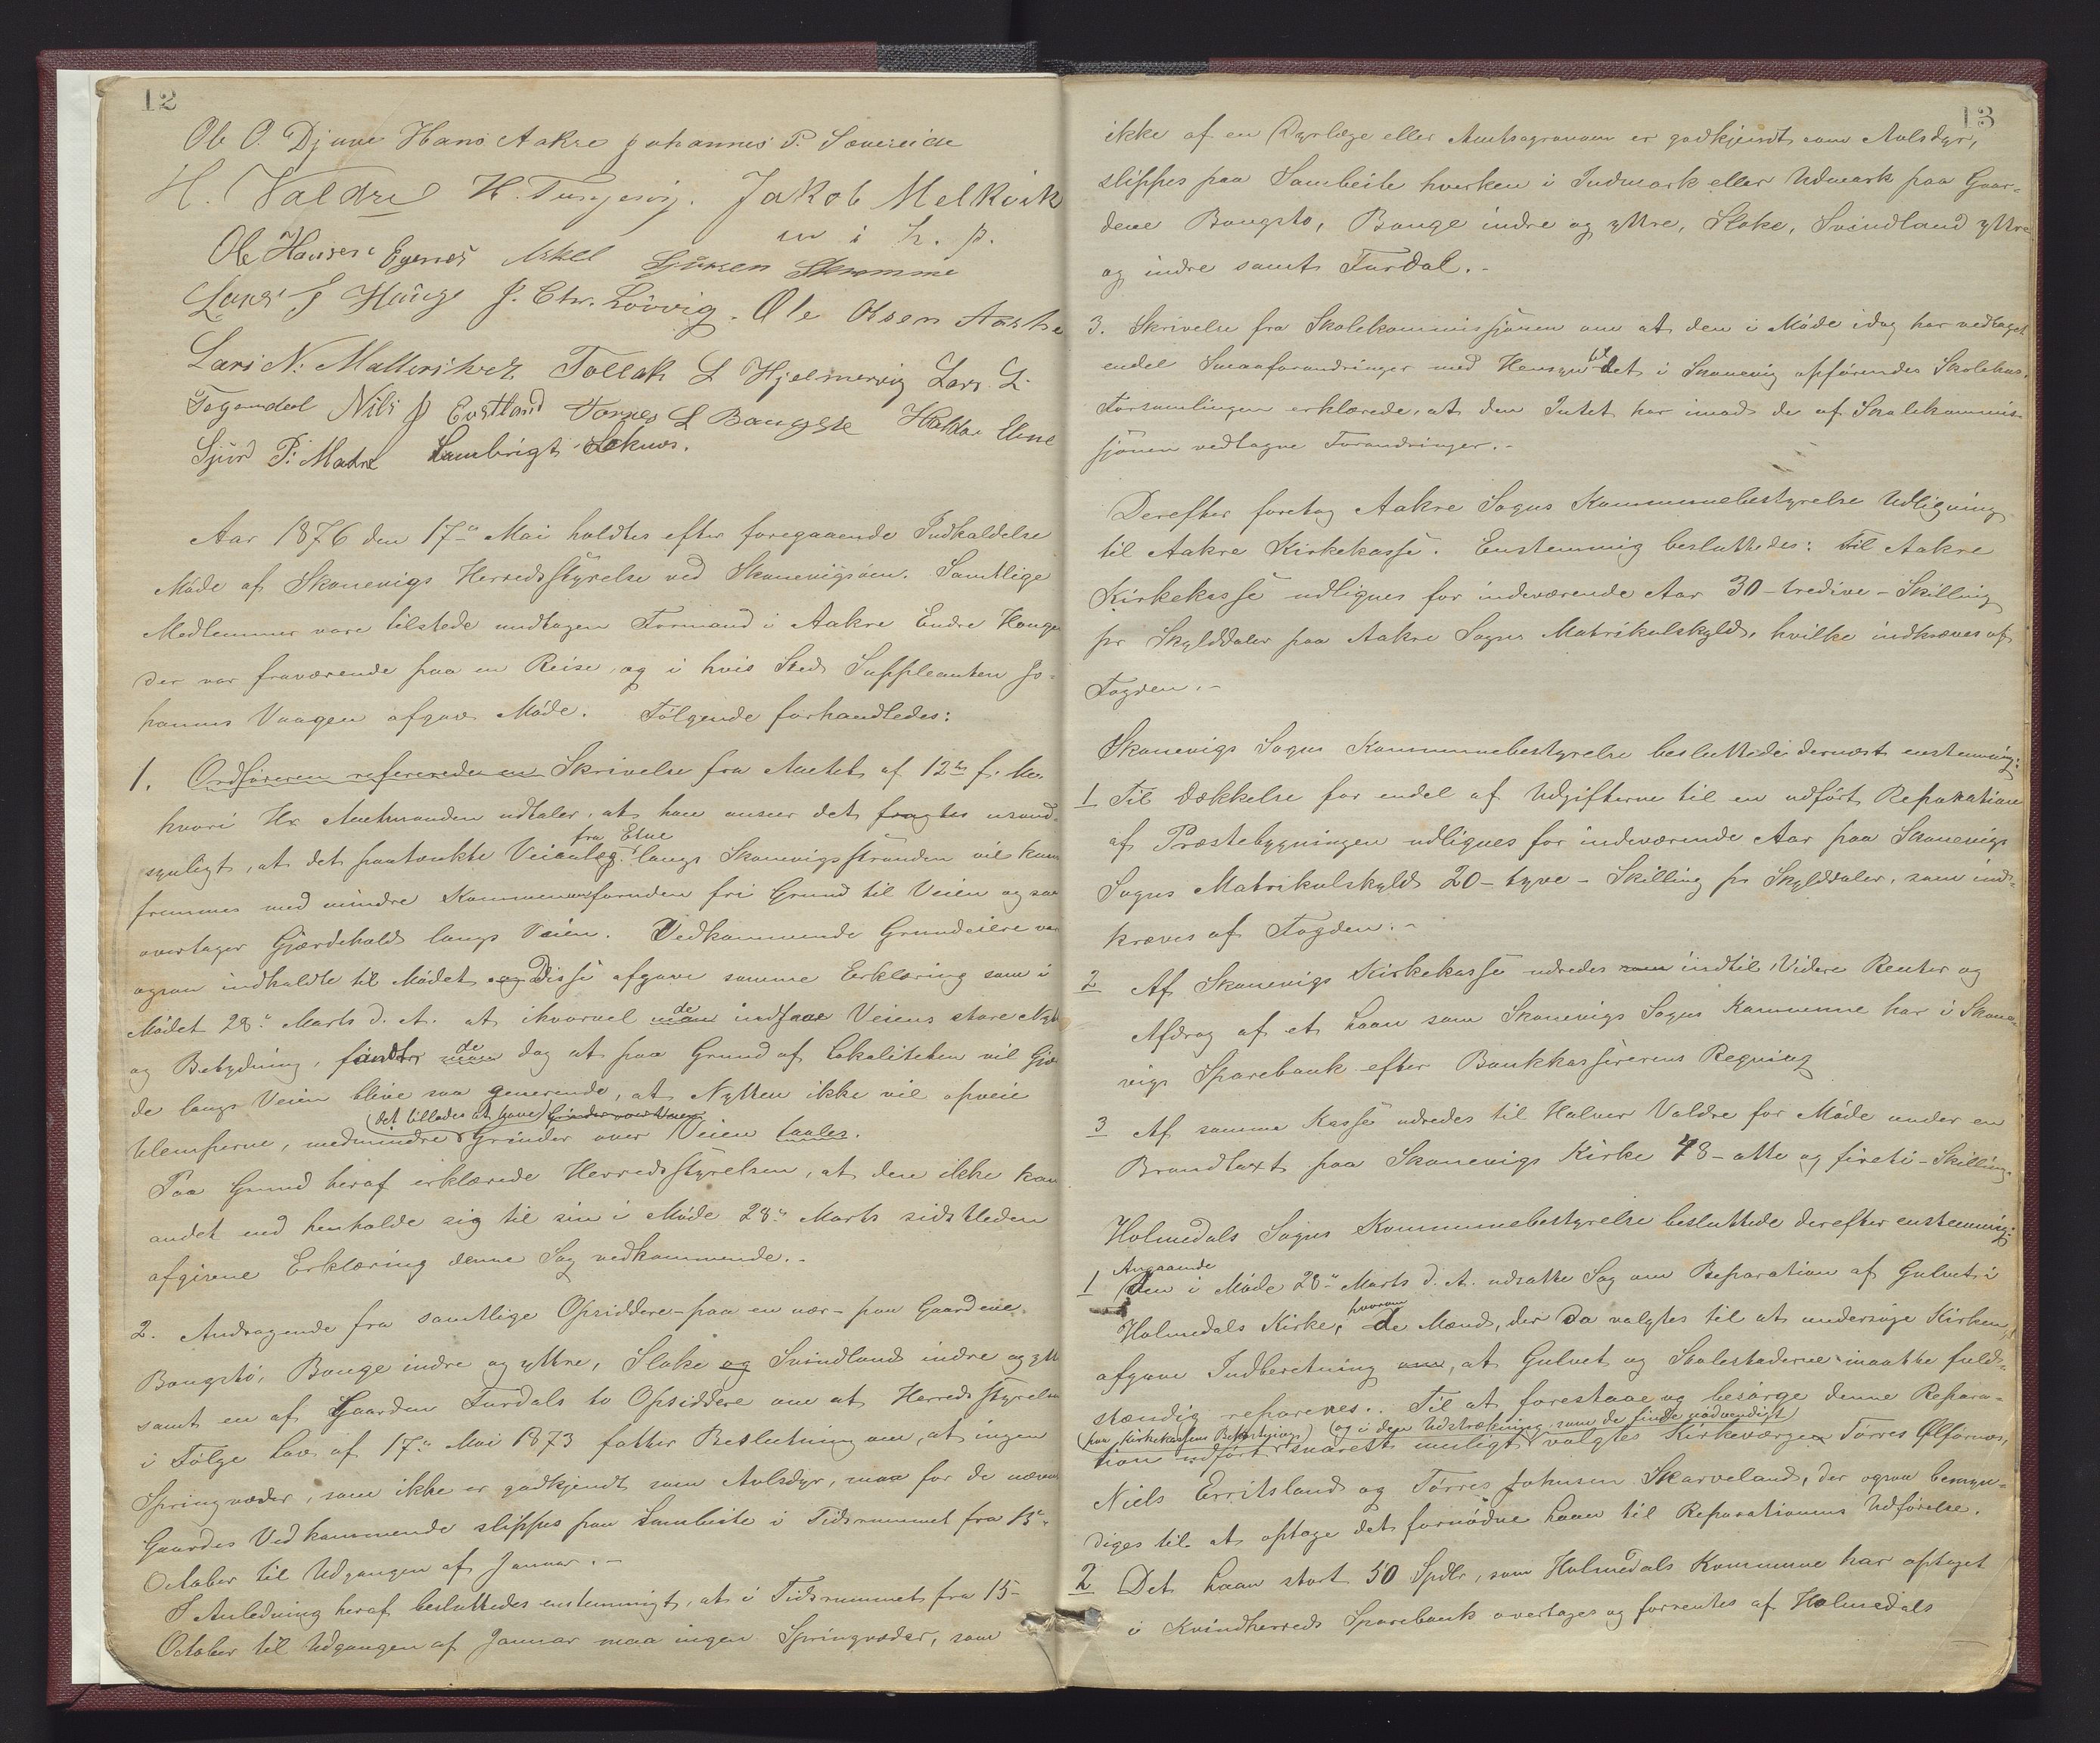 12
Ole O. Djuve Hans Aakre Johannes P. Sævereide
H. Valdre H. Tungesvig. Jakob Melkvik
m i h. p.
Ole Hansen Egenes Askel Sjursen Skromme
Lars J Hauge J. Chr. Lövvig. Ole Olsen
Lars N. Tollak L Hjelmervig Lars L.
Nils J Torres L Baugstø Haldor Ebne
Sjur P. Matre Lambrigt Øknes.
Aar 1876 den 17de Mai holdtes efter foregaaende Indkaldelse
Møde af Skonevigs Herredsstyrelse ved Skonevigsøen. Samtlige
Medlemmer vare tilstede undtagen Formand i Aakre Endre Hauge
der var fraværende paa en Reise, og i hvis Sted Suppleanten Jo-
hannes Vaagen afgav Møde. Følgende forhandledes:
1. Ordføreren refererede en Skrivelse fra Amtet af 12te f. M.
hvori Hr. Amtmanden udtaler, at han anseer det usand-
synligt, at det paatænkte Veianlæg fra Etne langs Skonevigsstranden vil kun
fremmes med mindre Kommunen foruden fri Grund til Veien ogsaa
overtager Gjærdehold langs Veien. Vedkommende Grundeiere var
ogsaa indkaldte til Mødet og Disse afgave samme Erklæring som i
Mødet 28de Marts d. A. at ihvorvel man de indsaae Veiens store Nytte
og Betydning, fandtes man de dog at paa Grund af Lokaliteten vil Gjær-
de langs Veien blive saa generende, at Nytten ikke vil opveie
Ulemperne, medmindre (det tillades at have) Grinder over Veien taales.
Paa Grund heraf erklærede Herredsstyrelsen, at den ikke kan
andet end henholde sig til sin i Møde 28de Marts sidstleden
afgivne Erklæring denne Sag vedkommende.-
2. Andragende fra samtlige Opsiddere - paa en nær - paa Gaardene
Baugstø, Bauge indre og yttre, Sløke og Svindland indre og ytt
samt en af Gaarden Furdals to Opsiddere om at Herredsstyrelsen
i Følge Lov af 17de Mai 1873 fatter Beslutning om, at ingen
Springvæder, som ikke er godkjendt som Avlsdyr, maa for de nævnte
Gaardes Vedkommende slippes paa Sambeite i Tidsrummet fra 15de
October til Udgangen af Januar.-
I Anledning heraf besluttedes enstemmigt, at i Tidsrummet fra 15-
October til Udgangen af Januar maa ingen Springvæder, som
13
ikke af en Dyrlæge eller Amtsagronom er godkjendt som Avlsdyr,
slippes paa Sambeite hverken i Indmark eller Udmark paa Gaar-
dene Baugstø, Bauge indre og yttre, Sløke, Svindland yttre
og indre samt Furdal.-
3. Skrivelse fra Skolekommissjonen om at den i Møde idag har vedtaget
endel Smaaforandringer med Hensyn til det i Skonevig opførendes Skolehus.
Forsamlingen erklærede, at den Intet har imod de af Skolekommis-
sjonen vedtagne Forandringer.-
Derefter foretog Aakre Sogns Kommunebestyrelse Udligning
til Aakre Kirkekasse. Enstemmig besluttedes: til Aakre
Kirkekasse udlignes for indeværende Aar 30 - tredive - Skilling
pr Skylddaler paa Aakre Sogns Matrikulskyld, hvilke indkræves af
Fogden.-
Skonevigs Sogns Kommunebestyrelse besluttede dernæst enstemmig:
1 Til Dækkelse for endel af Udgifterne til en udført Reparation
af Præstebygningen udlignes for indeværende Aar paa Skonevigs
Sogns Matrikulskyld 20 - tyve - Skilling pr Skylddaler, som ind-
kræves af Fogden.-
2 Af Skonevigs Kirkekasse udredes som indtil Videre Renter og
Afdrag af et Laan som Skonevigs Sogns Kommune har i Skone-
vigs Sparebank efter Bankkassererens Regning
3 Af samme Kasse udredes til Halvor Valdre for Møde under en
Brandtaxt paa Skonevigs Kirke 48 - otte og fireti - Skilling.
Holmedals Sogns Kommunebestyrelse besluttede derefter enstemmig:
1 Angaaende den i Møde 28de Marts d. A. udsatte Sag om Reparation af Gulvet i
Holmedals Kirke, hvorom de Mænd, der da valgtes til at undersøge Kirken,
afgave Indberetning om, at Gulvet og Stolestaderne maatte fuld-
stændig repareres.. Til at forestaae og besørge denne Repara-
(for Kirkekassens Bekostning) (og i den Udstrækning som de finde nødvendigt)
tion udført snarest muligt valgtes Kirkeværgen Tørres Ølfarnes,
Niels Erritsland og Tørres Johnsen Skarveland, der ogsaa bemyn-
diges til at optage det fornødne Laan til Reparationens Udførelse.
2 Det Laan stort 50 Spdlr, som Holmedals Kommune har optaget
i Kvindherreds Sparebank overtages og forrentes af Holmedals